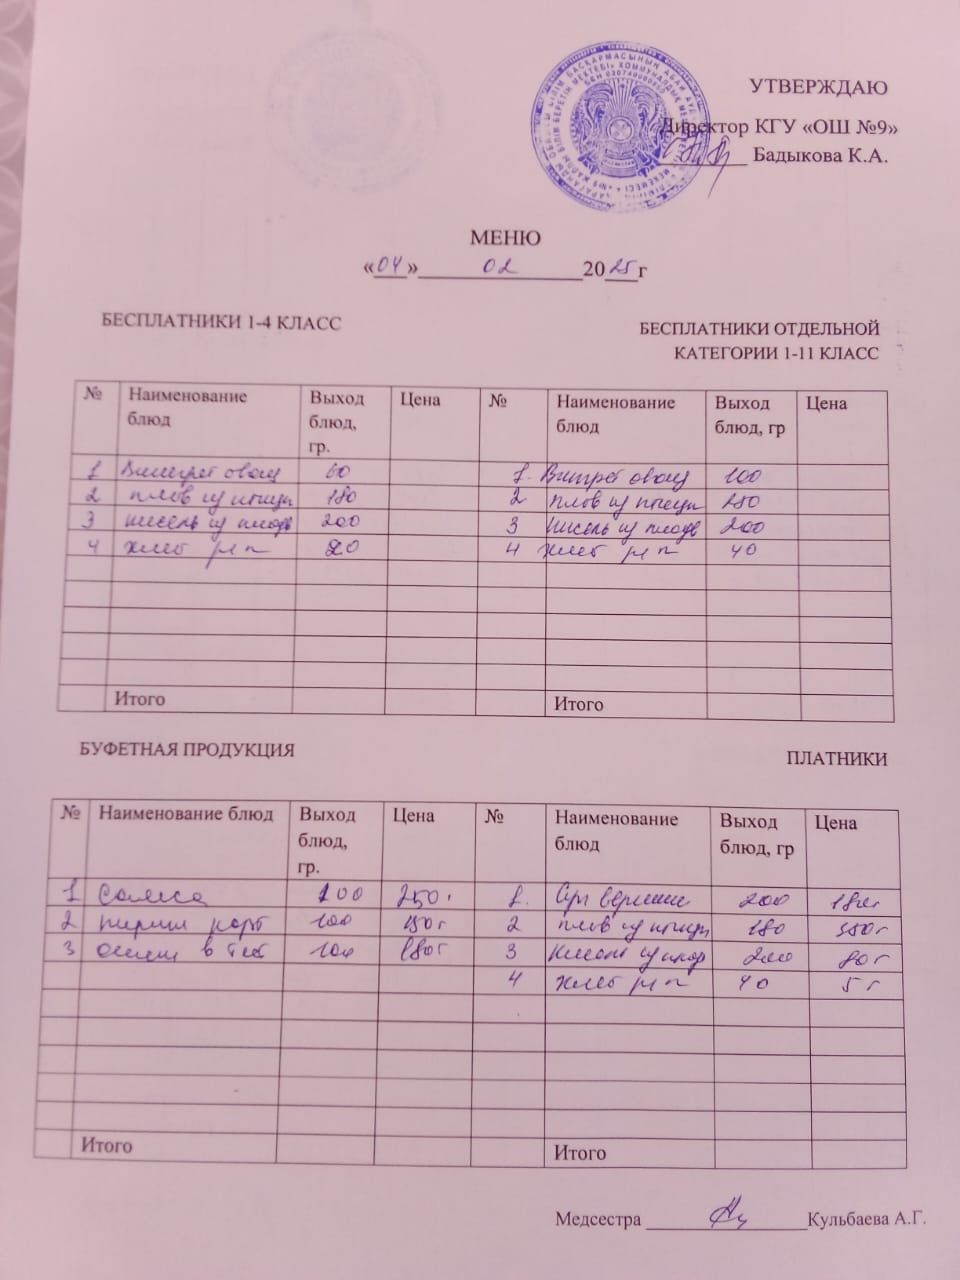 УТВЕРЖДАЮ
Директор КГУ «ОШ №9»
Бадыкова К.А.
МЕНЮ
«04» 02 2025г
БЕСПЛАТНИКИ 1-4 КЛАСС
БЕСПЛАТНИКИ ОТДЕЛЬНОЙ
КАТЕГОРИИ 1-11 КЛАСС
№ Наименование блюд Выход блюд, гр. Цена № Наименование блюд Выход блюд, гр Цена
1 Винегрет овощ 60 1. Винегрет овощ 100
2 плов из птицы 180 2 плов из птицы 250
3 кисель из плодов 200 3 кисель из плодов 200
4 хлеб рж п 20 4 хлеб рж п 40
Итого Итого
БУФЕТНАЯ ПРОДУКЦИЯ
ПЛАТНИКИ
№ Наименование блюд Выход блюд, гр. Цена № Наименование блюд Выход блюд, гр Цена
1 100 250т 1. Суп 200 180т
2 пирожки карт 100 150т 2 плов из птицы 180
3 в тес 100 180т 3 кисель из 200 80т
4 хлеб рж п 40 5т
Итого Итого
Медсестра Кульбаева А.Г.